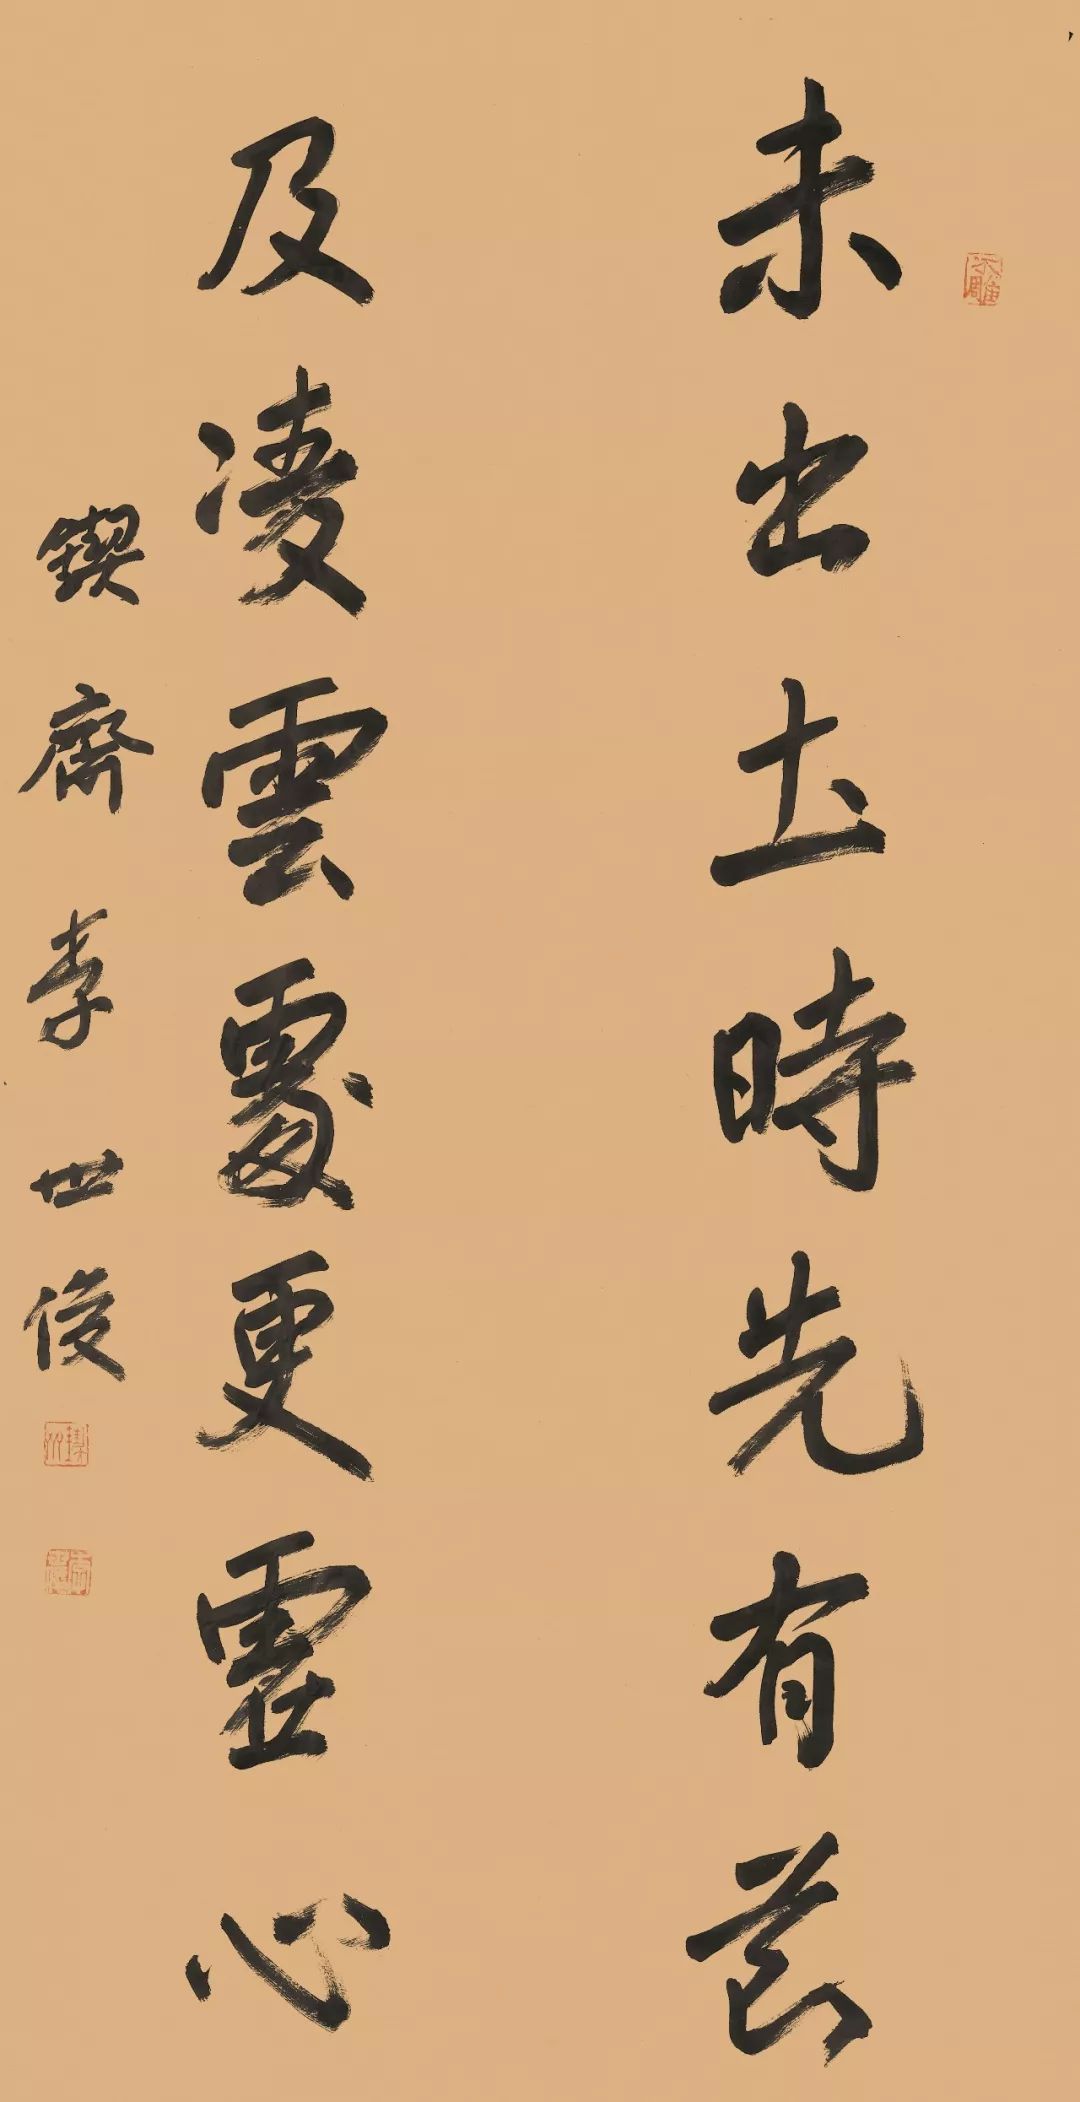 未出土時先有節
及凌雲處更虛心
鍥齋李世俊